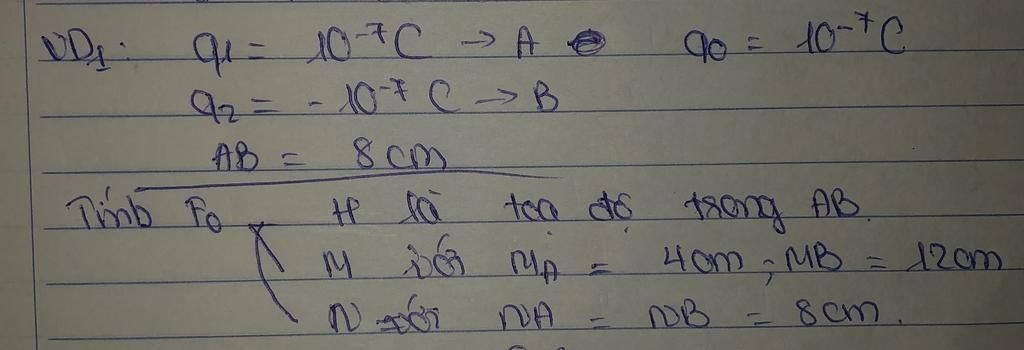 VD1: q1 = 10⁻⁷C → A q0 = 10⁻⁷C
q2 = -10⁻⁷C → B
AB = 8cm
Tính F0 H là toạ độ trong AB.
M với MA = 4cm; MB = 12cm
N với NA = NB = 8cm.